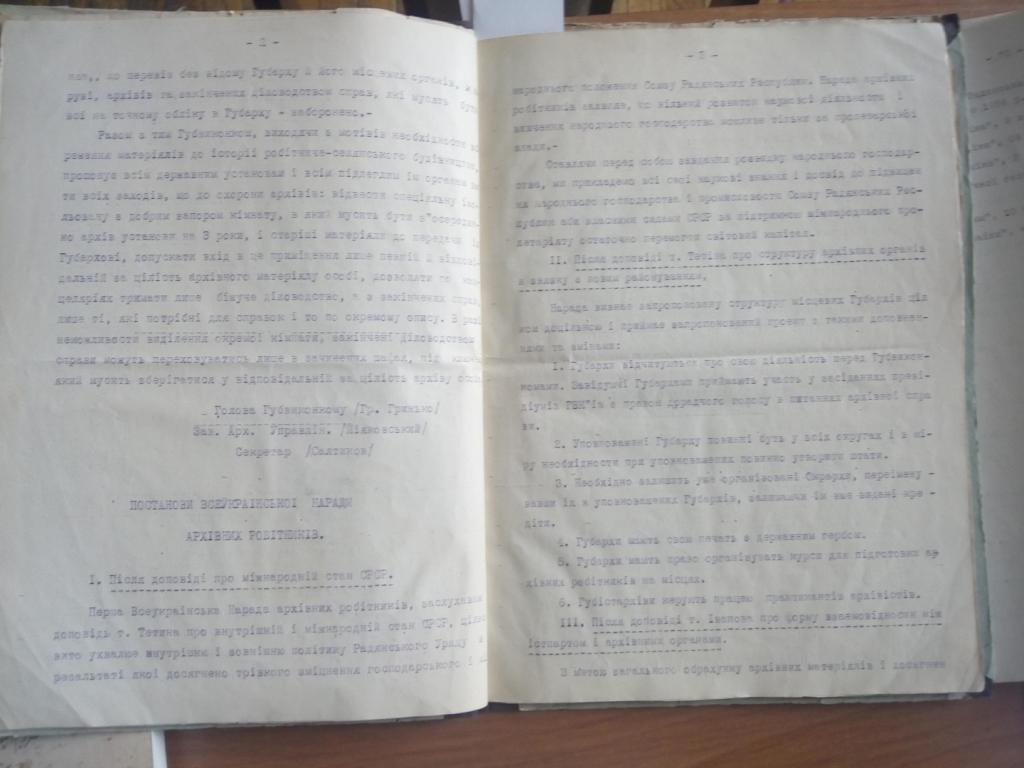 - 2 -
що перевіз без відому Губарху й його місцевих органів,
архівів та закінчених діловодством справ, які мусять
всі на точному обліку в Губарху - заборонено.-
Разом з тим Губвиконком, виходячи з мотивів необхідности
матеріялів до історії робітничо-селянського будівництва,
пропонує всім державним установам і всім підлеглим їм органам
ти всіх заходів, що до схорони архівів: відвести спеціяльну
льовану з добрим запором кімнату, в якій мусить бути
но архів установи на 3 роки, і старіші матеріяли до передачи
Губархові, допускати вхід в це приміщення лише певній й відпові-
дальній за цілість архівного матеріялу особі, дозволяти по кан-
целяріях тримати лише біжуче діловодство, а з закінчених справ
лише ті, які потрібні для справок і то по окремому опису. В разі
неможливости виділення окремої кімнати, закінчені діловодством
справи можуть переховуватись лише в зачинених шафах, під ключем,
який мусить зберігатися у відповідальній за цілість архіву особи.
Голова Губвиконкому /Гр. Гринько/
Зав. Арх. Управлін. /Міяковський/
Секретар /Салтиков/
ПОСТАНОВИ ВСЕУКРАЇНСЬКОЇ НАРАДИ
АРХІВНИХ РОБІТНИКІВ.
I. Після доповіді про міжнародній стан СРСР.
Перша Всеукраїнська Нарада архівних робітників, заслухавши
доповідь т. Тетина про внутрішній і міжнародній стан СРСР, цілко-
вито ухвалює внутрішню і зовнішню політику Радянського Уряду
результаті якої досягнено трівкого зміцнення господарського і
- 3 -
народнього положення Союзу Радянських Республик. Нарада архівних
робітників заявляє, що вільний розвиток наукової діяльности і
вивчення народнього господарства можливе тільки за пролетарської
влади.-
Ставлячи перед собою завдання розвитку народнього господар-
ства, ми прикладемо всі свої наукові знання і досвід до підвищен-
ня народнього господарства і промисловости Союзу Радянських Рес-
публик аби власними силами СРСР за підтримкою міжнароднього про-
летаріяту остаточно перемогти світовий капітал.
II. Після доповіді т. Тетина про структуру архівних органів
в звязку з новим районуванням.
Нарада визнає запропоновану структуру місцевих Губархів ціл
ком доцільною і приймає запропонований проект з такими доповнен-
нями та змінами:
1. Губархи відчитуються про свою діяльність перед Губвикон-
комами. Завідуючі Губархами приймають участь у засіданнях прези-
діумів ГВК'ів з правом дорадчого голосу в питаннях архівної спра
ви.
2. Уповноважені Губарху повинні буть у всіх округах і в мі-
ру необхідности при уповноважених повинно утворити штати.
3. Необхідно залишить уже організовані Окрархи, перейmену -
вавши їх в уповноважених Губархів, залишаючи їм вже видані кре -
діти.
4. Губархи мають свою печать з державним гербом.
5. Губархи мають право організувать курси для підготовки ар
хівних робітників на місцях.
6. Губістархіви керують працею практикантів архівістів.
III. Після доповіді т. Іванова про норму взаємовідносин між
істпартом і архівними органами.
З метою загального обрахунку архівних матеріялів і досягнен